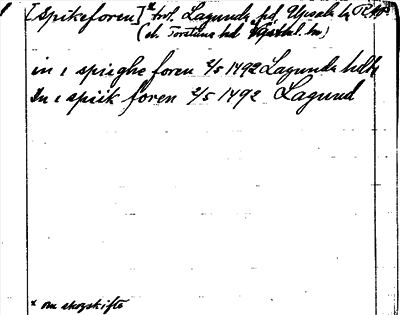 [Spikaforen]* trol. Lagunda hd, Upsala l.
(el. Torstuna hd Västml. l.)
in i spiighe foren 2/5 1492 Lagunda hd
In i spiik foren 2/5 1492 Lagund
* om skogskifte